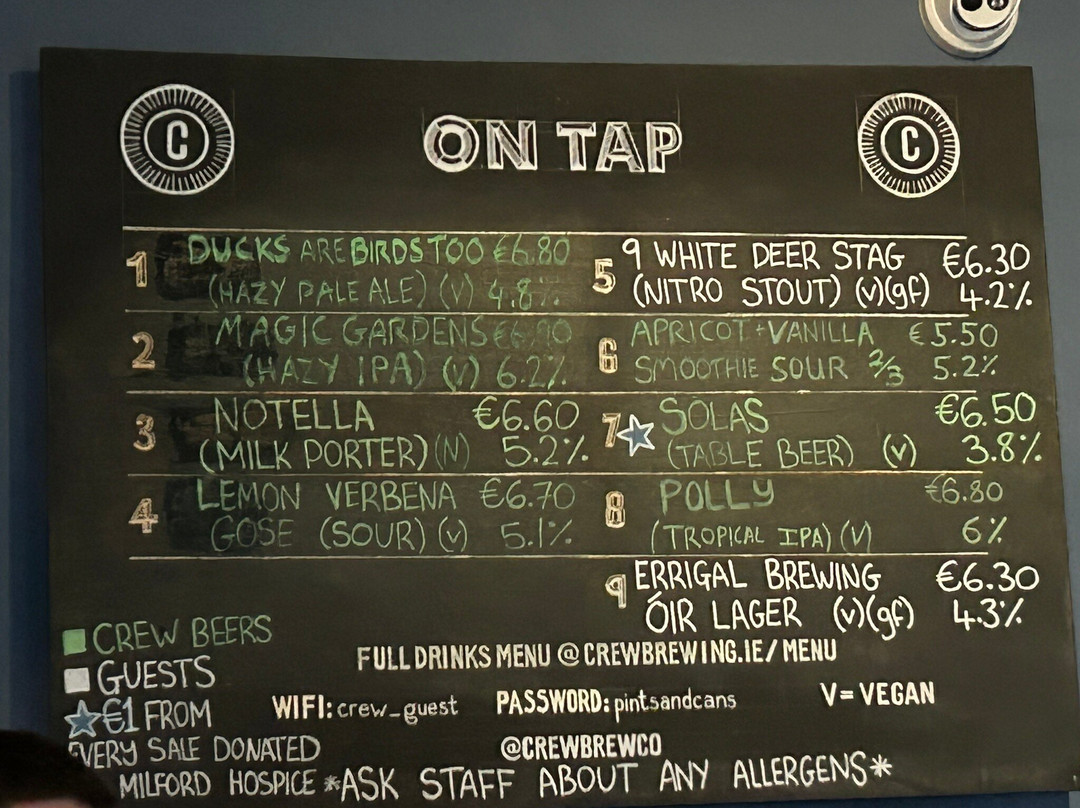 C
ON TAP
C
1 DUCKS ARE BIRDS TOO €6.80
(HAZY PALE ALE) (V) 4.8%
2 MAGIC GARDENS €6.90
(HAZY IPA) (V) 6.2%
3 NOTELLA €6.60
(MILK PORTER) (N) 5.2%
4 LEMON VERBENA €6.70
GOSE (SOUR) (V) 5.1%
5 9 WHITE DEER STAG €6.30
(NITRO STOUT) (V)(gf) 4.2%
6 APRICOT + VANILLA €5.50
SMOOTHIE SOUR 2/3 5.2%
7 SOLAS €6.50
(TABLE BEER) (V) 3.8%
8 POLLY €6.80
(TROPICAL IPA) (V) 6%
9 ERRIGAL BREWING €6.30
ÓIR LAGER (V)(gf) 4.3%
CREW BEERS
GUESTS
€1 FROM
EVERY SALE DONATED
MILFORD HOSPICE
FULL DRINKS MENU @ CREWBREWING.IE/MENU
WIFI: crew_guest PASSWORD: pintsandcans V = VEGAN
@CREWBREWCO
*ASK STAFF ABOUT ANY ALLERGENS*